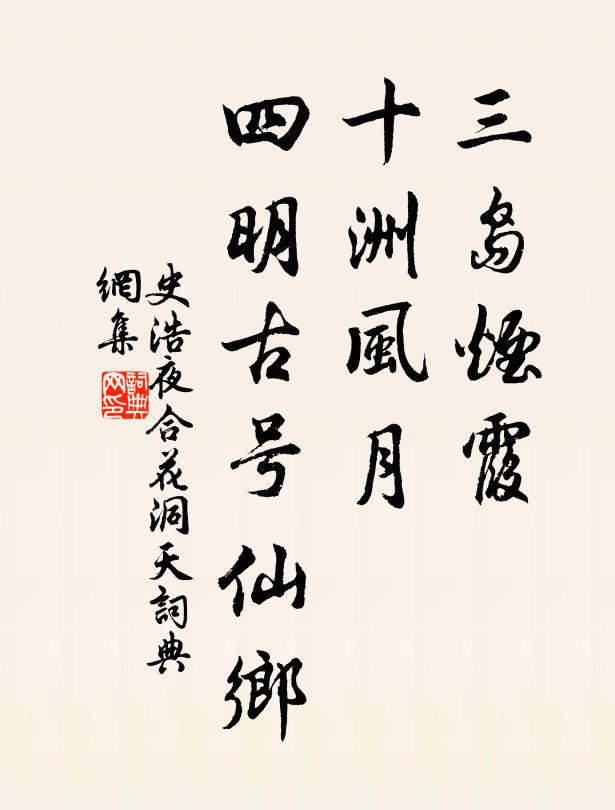 三島煙霞
十洲風月
四明古号仙鄉
史浩夜合花洞天詞典
網集
詞典网印